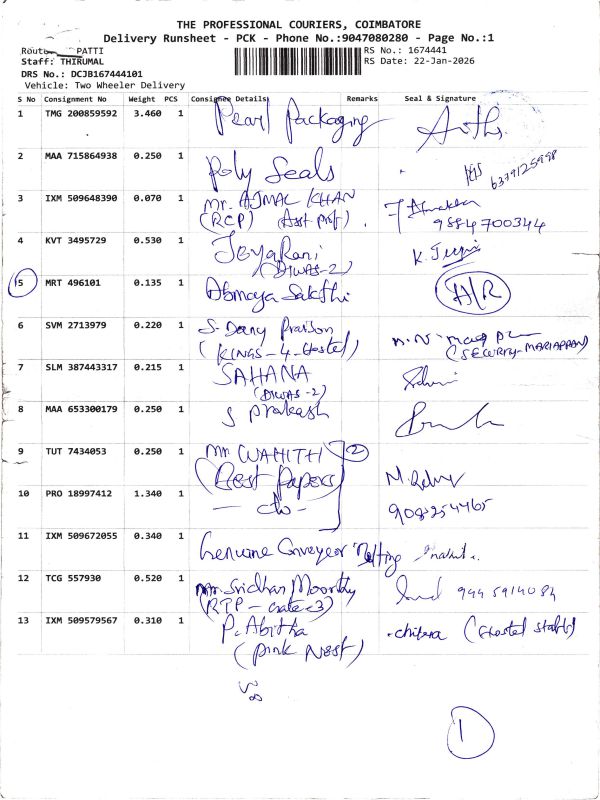 THE PROFESSIONAL COURIERS, COIMBATORE
Delivery Runsheet - PCK - Phone No.:9047080280 - Page No.:1
PATTI
RS No.: 1674441
Staff: THIRUMAL
RS Date: 22-Jan-2026
DRS No.: DCJB167444101
Vehicle: Two Wheeler Delivery
S No Consignment No Weight PCS Consignee Details Remarks Seal & Signature
1 TMG 200859592 3.460 1 Pearl Packaging
2 MAA 715864938 0.250 1 Poly Seals
6379125998
3 IXM 509648390 0.070 1 Mr. AJMAL KHAN
(RCP) (Asst Prof)
9884700344
4 KVT 3495729 0.530 1 JeyaRani
(DIWAS-2)
5 MRT 496101 0.135 1 Sakthi A/R
6 SVM 2713979 0.220 1 S. Dany
(KINGS-4-Hostel) (SECURITY-MARIAPPAN)
7 SLM 387443317 0.215 1 SAHANA
(DIWAS-2)
8 MAA 653300179 0.250 1 S Prakash
9 TUT 7434053 0.250 1 Mr. WAHITH 2
(Best Papers)
10 PRO 18997412 1.340 1 - do -
11 IXM 509672055 0.340 1 Genuine Conveyor
12 TCG 557930 0.520 1 Mr. Sridhar Moorthy
13 IXM 509579567 0.310 1 P. Abitha
(Pink Nest)
1